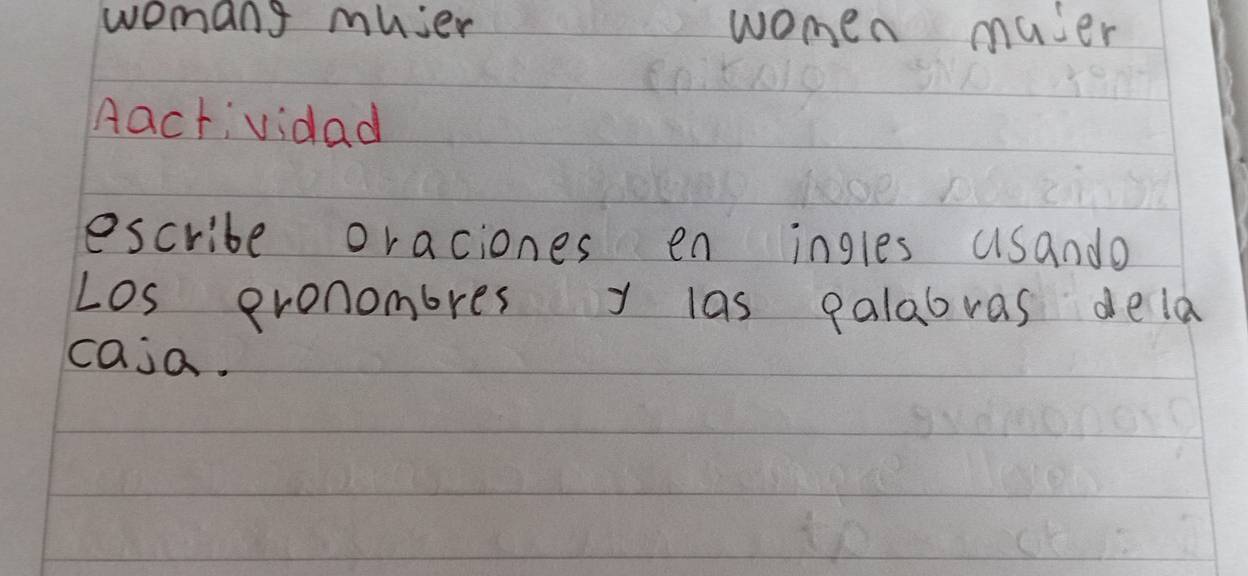 womans mujer women mujer
Aactividad
escribe oraciones en ingles usando
Los pronombres y las palabras dela
caja.